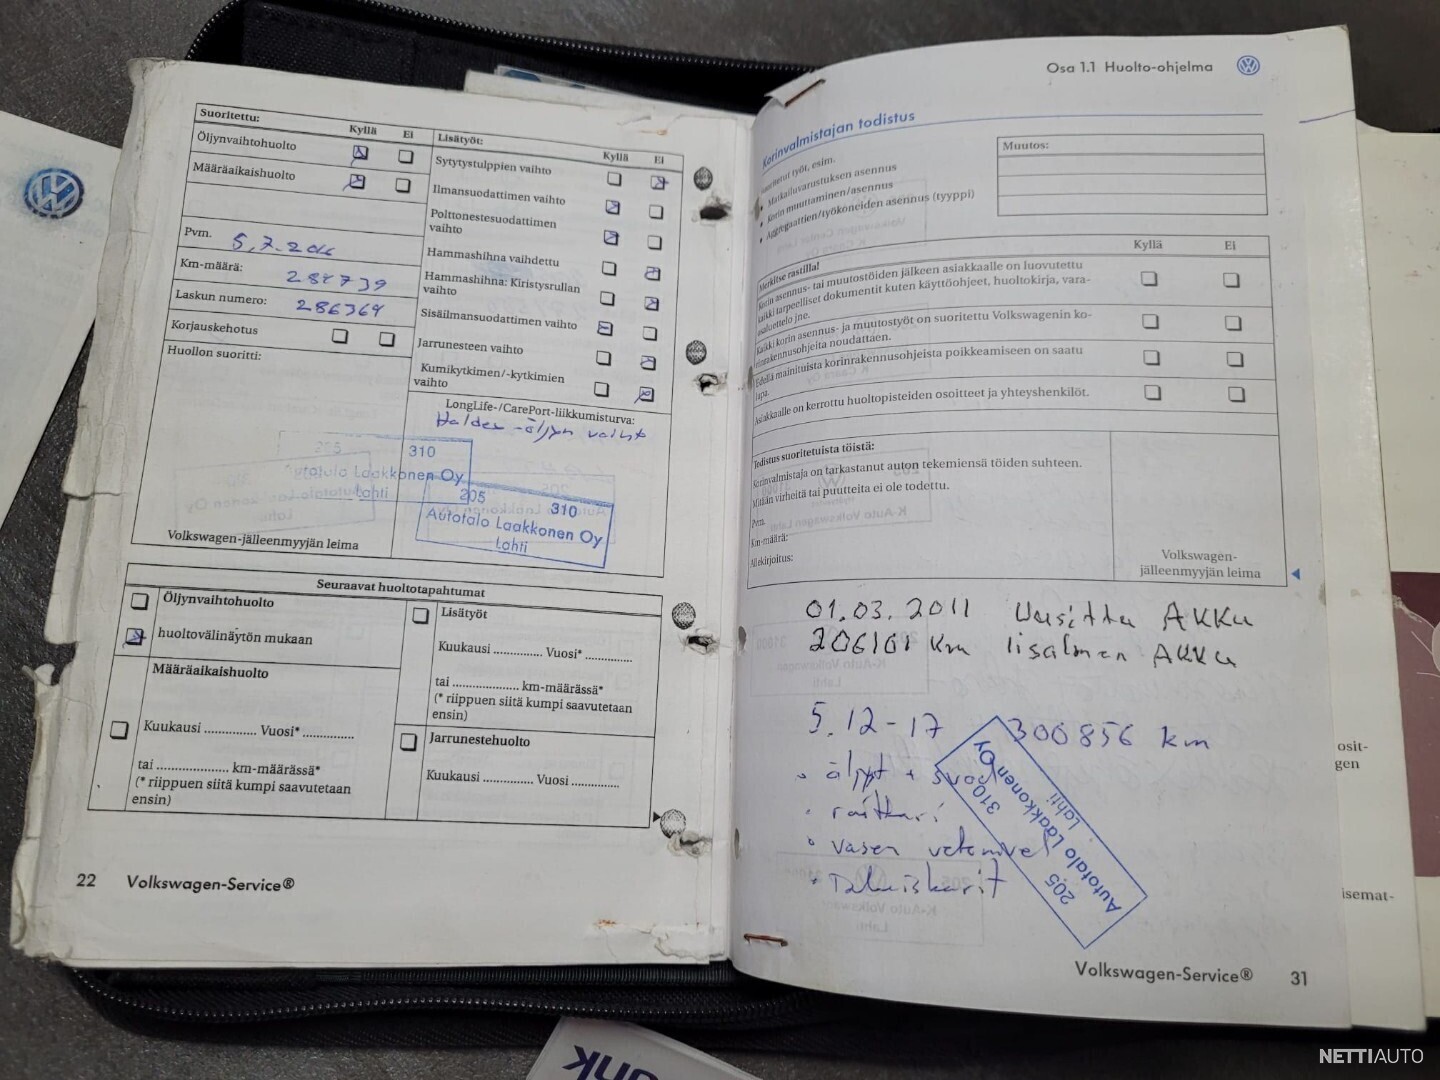 Suoritettu:
Kyllä Ei
Öljynvaihtohuolto
Määräaikaishuolto
Pvm. 5.7.2016
Km-määrä: 284739
Laskun numero: 286364
Korjauskehotus
Huollon suoritti:
Volkswagen-jälleenmyyjän leima
Lisätyöt:
Kyllä Ei
Sytytystulppien vaihto
Ilmansuodattimen vaihto
Polttonestesuodattimen
vaihto
Hammashihna vaihdettu
Hammashihna: Kiristysrullan
vaihto
Sisäilmansuodattimen vaihto
Jarrunesteen vaihto
Kumikytkimen/-kytkimien
vaihto
LongLife-/CarePort-liikkumisturva:
Haldex -öljyn vaihto
205 310
Autotalo Laakkonen Oy
Lahti
205 310
Autotalo Laakkonen Oy
Lahti
Seuraavat huoltotapahtumat
Öljynvaihtohuolto
huoltovälinäytön mukaan
Määräaikaishuolto
Kuukausi .............. Vuosi* ..............
tai ...................... km-määrässä*
(* riippuen siitä kumpi saavutetaan
ensin)
Lisätyöt
Kuukausi .............. Vuosi* .............
tai ................... km-määrässä*
(* riippuen siitä kumpi saavutetaan
ensin)
Jarrunestehuolto
Kuukausi .............. Vuosi ..............
22 Volkswagen-Service®
Osa 1.1 Huolto-ohjelma
Korinvalmistajan todistus
suoritetut työt, esim.
• Matkailuvarustuksen asennus
• Korin muuttaminen/asennus
• Aggregaattien/työkoneiden asennus (tyyppi)
Muutos:
Merkitse rastilla!
Kyllä Ei
Korin asennus- tai muutostöiden jälkeen asiakkaalle on luovutettu
kaikki tarpeelliset dokumentit kuten käyttöohjeet, huoltokirja, vara-
osaluettelo jne.
Kaikki korin asennus- ja muutostyöt on suoritettu Volkswagenin ko-
rinrakennusohjeita noudattaen.
Edellä mainituista korinrakennusohjeista poikkeamiseen on saatu
lupa.
Asiakkaalle on kerrottu huoltopisteiden osoitteet ja yhteyshenkilöt.
Todistus suoritetuista töistä:
Korinvalmistaja on tarkastanut auton tekemiensä töiden suhteen.
Mitään virheitä tai puutteita ei ole todettu.
Pvm.
Km-määrä:
Allekirjoitus:
Volkswagen-
jälleenmyyjän leima
01.03.2011 Uusittu AKKU
206101 km Iisalmen AKKU
5.12-17 300856 km
• öljyt + suod
• raitkari
• vasen vetonivel
205 310
Autotalo Laakkonen Oy
Lahti
Volkswagen-Service® 31
osit-
gen
isemat-
NETTIAUTO